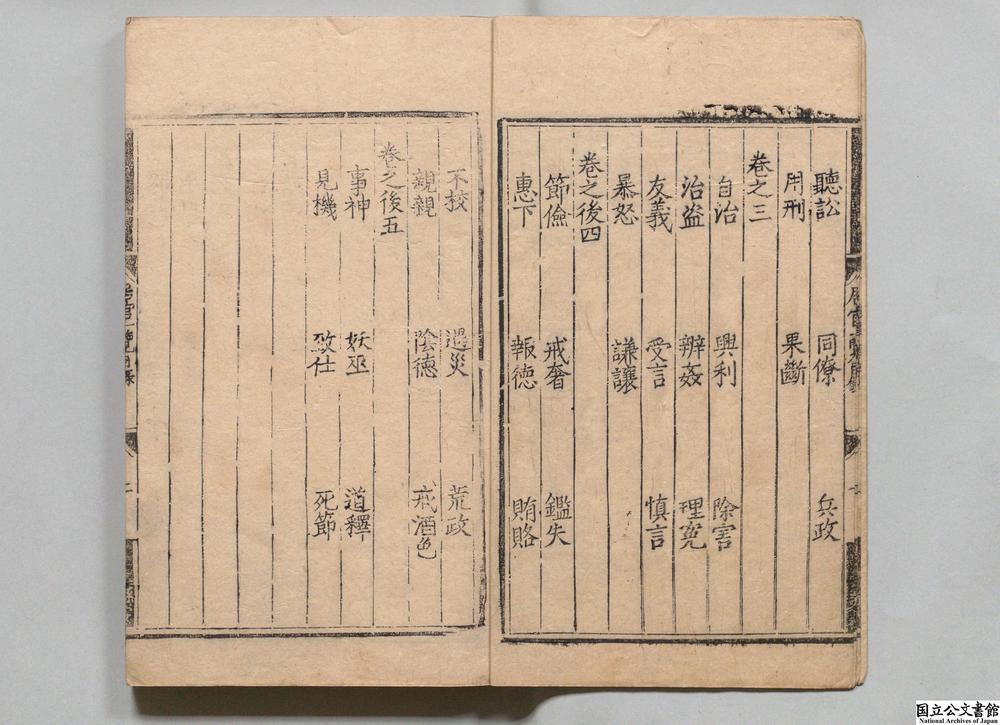 聽訟 同僚 兵政
用刑 果斷
卷之三
自治 興利 除害
治盜 辨姦 理寃
友義 受言 慎言
暴怒 謙讓
卷之後四
節儉 戒奢 鑑失
惠下 報德 賄賂
不校 遇災 荒政
親親 陰德 戒酒色
卷之後五
事神 妖巫 道釋
見機 致仕 死節
国立公文書館
National Archives of Japan